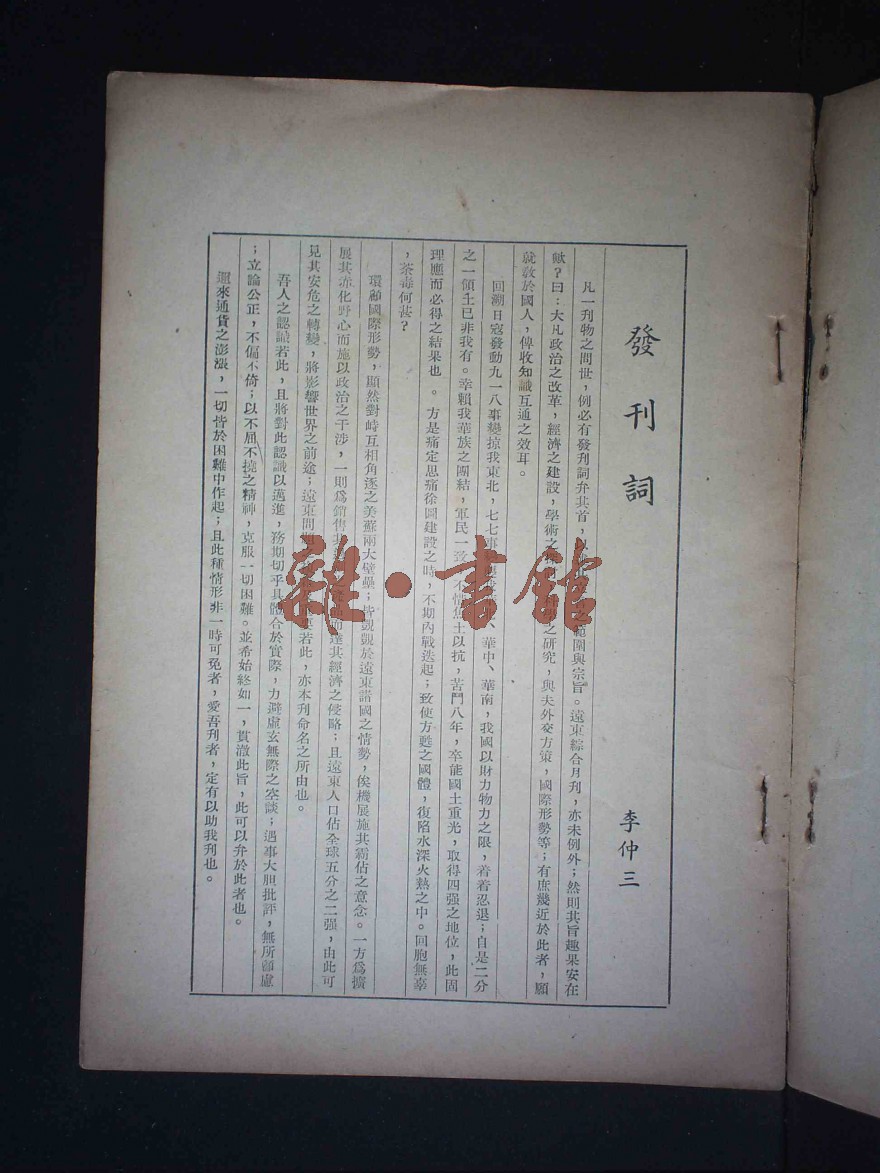 發刊詞
李仲三
凡一刊物之問世，例必有發刊詞弁其首，範圍與宗旨。遠東綜合月刊，亦未例外；然則其旨趣果安在
歟？曰：大凡政治之改革，經濟之建設，學術之之研究，與夫外交方策，國際形勢等；有庶幾近於此者，願
就教於國人，俾收知識互通之效耳。
回溯日寇發動九一八事變掠我東北，七七事、華中、華南，我國以財力物力之限，着着忍退；自是二分
之一領土已非我有。幸賴我華族之團結，軍民一致，不惜焦土以抗，苦鬥八年，卒能國土重光，取得四强之地位，此固
理應而必得之結果也。。方是痛定思痛徐圖建設之時，不期內戰迭起；致使方甦之國體，復陷水深火熱之中。回胞無辜
，荼毒何甚？
環顧國際形勢，顯然對峙互相角逐之美蘇兩大壁壘；皆覬覦於遠東諸國之情勢，俟機展施其霸佔之意念。一方爲擴
展其赤化野心而施以政治之干涉，一則爲銷售其而達其經濟之侵略；且遠東人口佔全球五分之二强，由此可
見其安危之轉變，將影響世界之前途；遠東問題若此，亦本刊命名之所由也。
吾人之認識若此，且將對此認識以邁進，務期切乎具體合於實際，力避虛玄無際之空談；遇事大胆批評，無所顧慮
；立論公正，不偏不倚；以不屈不撓之精神，克服一切困難。並希始終如一，貫澈此旨，此可以弁於此者也。
邇來通貨之澎漲，一切皆於困難中作起；且此種情形非一時可免者，愛吾刊者，定有以助我刊也。
雜·書館